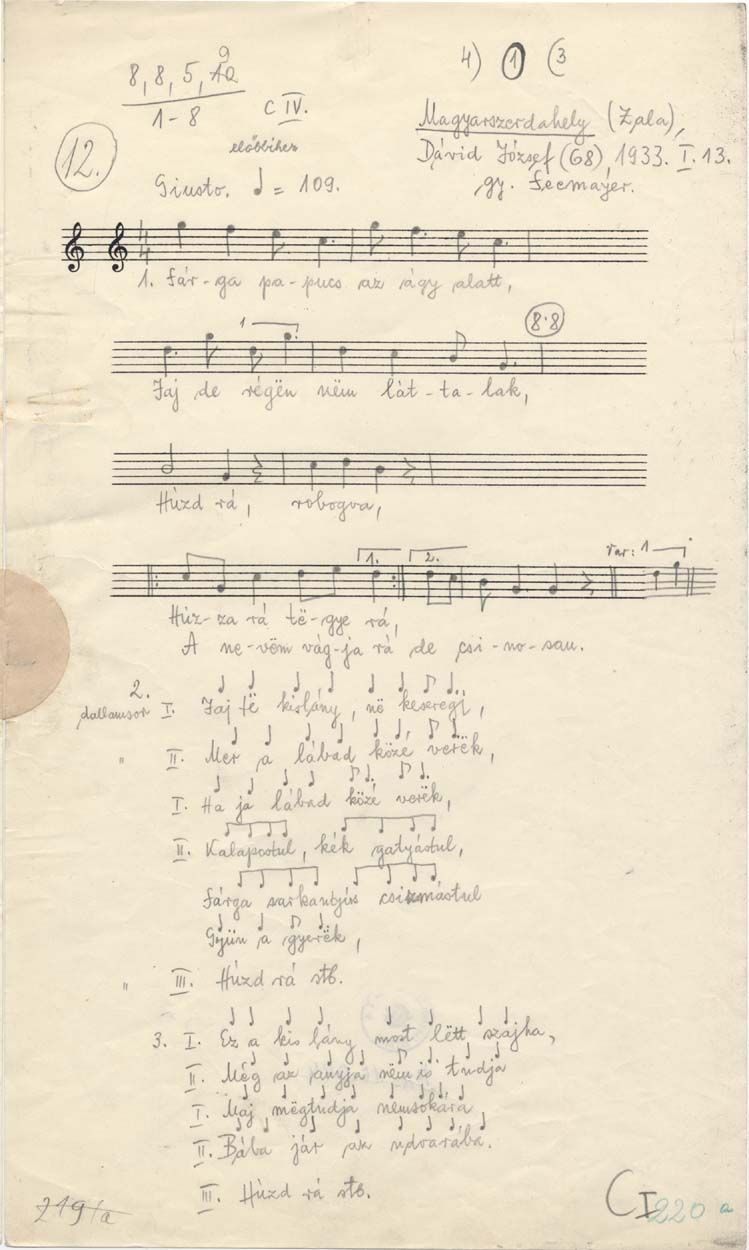 4) 1 (3
8, 8, 5, 10 9
1-8
C IV.
Magyarszerdahely (Zala),
12.
előbbihez
Dávid József (68) 1933. I. 13.
Giusto. ♩ = 109.
gy. Seemayer.
4
4
1. Sár-ga pa-pucs az ágy alatt,
1
8·8
Jaj de régën nëm lát-ta-lak,
Húzd rá, robogva,
1. 2. Var: 1
Húz-za rá të-gye rá,
A ne-vëm vág-ja rá de csi-no-san.
2.
dallamsor I. Jaj të kislány, në keseregj,
" II. Mer a lábad közé verëk,
I. Ha ja lábad közé verëk,
II. Kalapostul, kék gatyástul,
Sárga sarkantyús csizmástul
Gyün a gyerëk,
" III. Húzd rá stb.
3. I. Ez a kis lány most lëtt szajha,
II. Még az anyja nëm is tudja
I. Maj mëgtudja nemsokára
II. Bába jár az udvarába.
III. Húzd rá stb.
219/a
C I 220 a